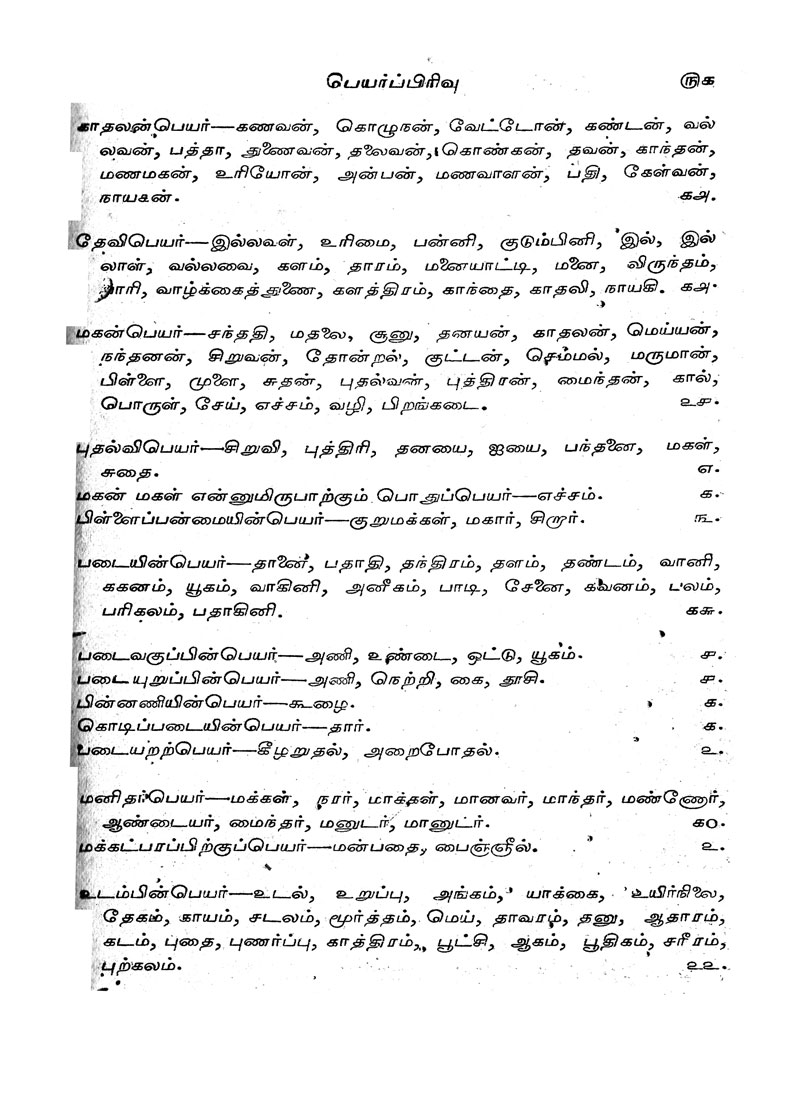 பெயர்ப்பிரிவு ௫௧
காதலன்பெயர்—கணவன், கொழுநன், வேட்டோன், கண்டன், வல்
லவன், பத்தா, துணைவன், தலைவன், கொண்கன், தவன், காந்தன்,
மணமகன், உரியோன், அன்பன், மணவாளன், பதி, கேள்வன்,
நாயகன். ௧௮.
தேவிபெயர்—இல்லவள், உரிமை, பன்னி, குடும்பினி, இல், இல்
லாள், வல்லவை, களம், தாரம், மனையாட்டி, மனை, விருந்தம்,
நாரி, வாழ்க்கைத்துணை, களத்திரம், காந்தை, காதலி, நாயகி. ௧௮.
மகன்பெயர்—சந்ததி, மதலை, சூனு, தனயன், காதலன், மெய்யன்,
நந்தனன், சிறுவன், தோன்றல், குட்டன், செம்மல், மருமான்,
பிள்ளை, முளை, சுதன், புதல்வன், புத்திரன், மைந்தன், கால்,
பொருள், சேய், எச்சம், வழி, பிறங்கடை. ௨௪.
புதல்விபெயர்—சிறுவி, புத்திரி, தனயை, ஐயை, பந்தனை, மகள்,
சுதை. ௭.
மகன் மகள் என்னுமிருபாற்கும் பொதுப்பெயர்—எச்சம். ௧.
பிள்ளைப்பன்மையின்பெயர்—குறுமக்கள், மகார், சிறார். ௩.
படையின்பெயர்—தானை, பதாதி, தந்திரம், தளம், தண்டம், வானி,
ககனம், யூகம், வாகினி, அனீகம், பாடி, சேனை, கவனம், பலம்,
பரிகலம், பதாகினி. ௧௬.
படைவகுப்பின்பெயர்—அணி, உண்டை, ஒட்டு, யூகம். ௪.
படையுறுப்பின்பெயர்—அணி, நெற்றி, கை, தூசி. ௪.
பின்னணியின்பெயர்—கூழை. ௧.
கொடிப்படையின்பெயர்—தார். ௧.
படையறற்பெயர்—கீழறுதல், அறைபோதல். ௨.
மனிதர்பெயர்—மக்கள், நரர், மாக்கள், மானவர், மாந்தர், மண்ணோர்,
ஆண்டையர், மைந்தர், மனுடர், மானுடர். ௧௦.
மக்கட்பரப்பிற்குப்பெயர்—மன்பதை, பைஞ்ஞீல். ௨.
உடம்பின்பெயர்—உடல், உறுப்பு, அங்கம், யாக்கை, உயிர்நிலை,
தேகம், காயம், சடலம், மூர்த்தம், மெய், தாவரம், தனு, ஆதாரம்,
கடம், புதை, புணர்ப்பு, காத்திரம், பூட்சி, ஆகம், பூதிகம், சரீரம்,
புற்கலம். ௨௨.